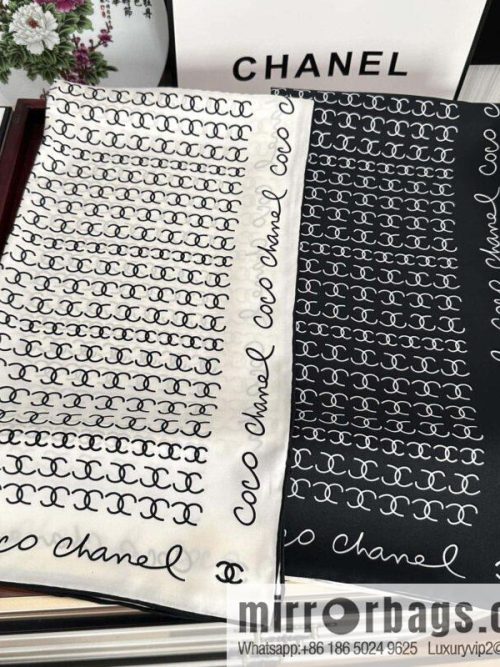 CHANEL
coco
coco chanel
coco chanel
co chanel
coco
chanel
mirrorbags.c
Whatsapp:+86 186 5024 9625 Luxuryvip2@